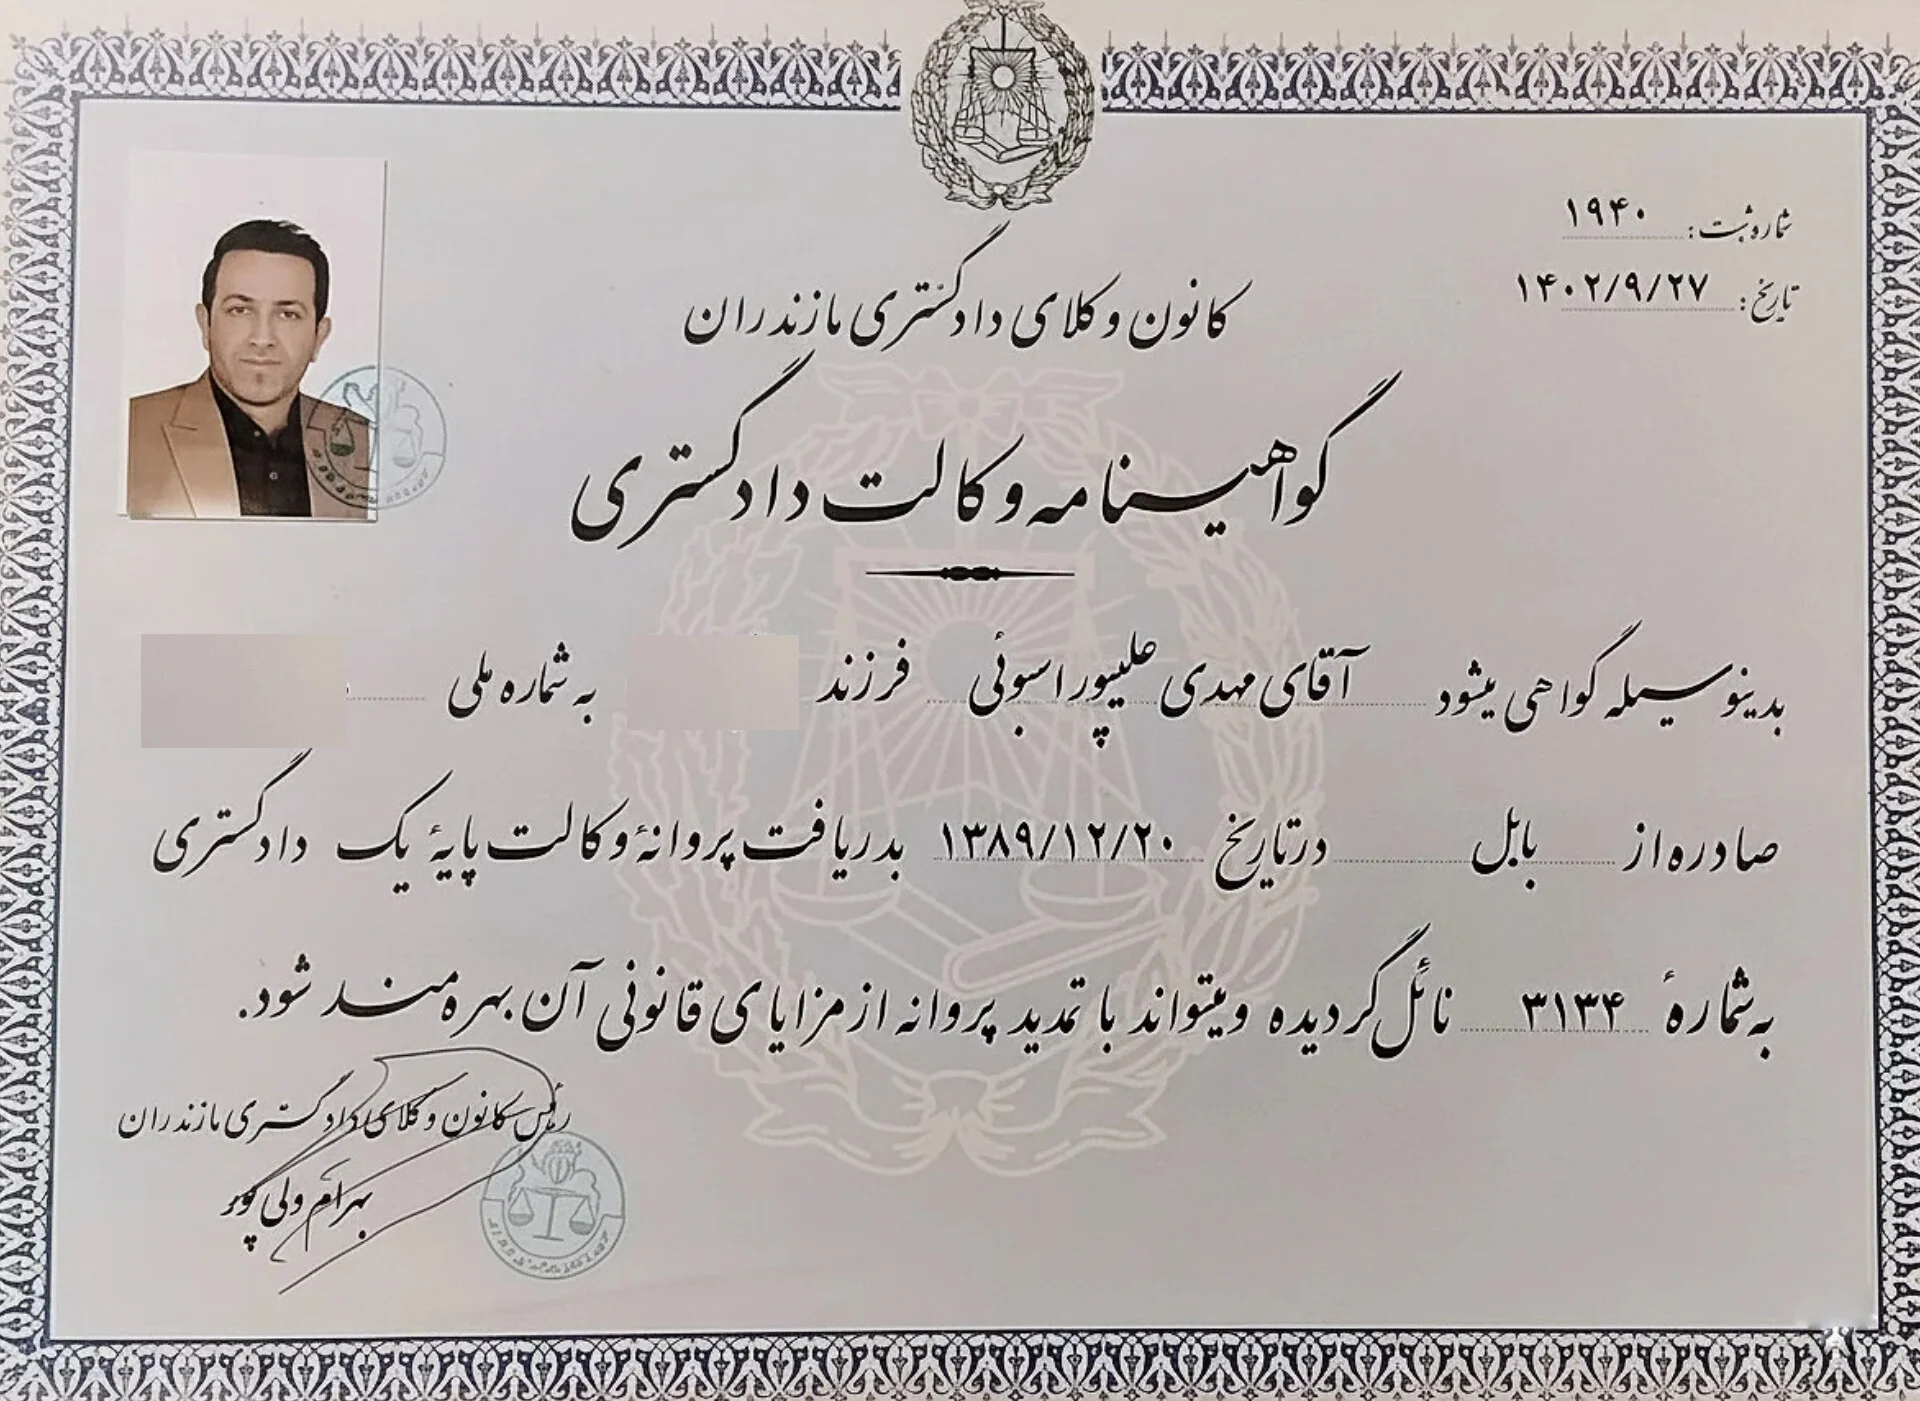 شماره ثبت: ۱۹۴۰
تاریخ: ۱۴۰۲/۹/۲۷
کانون وکلای دادگستری مازندران
گواهینامه وکالت دادگستری
بدینوسیله گواهی میشود آقای مهدی علیپور اسبوئی فرزند به شماره ملی
صادره از بابل در تاریخ ۱۳۸۹/۱۲/۲۰ بدریافت پروانهٔ وکالت پایهٔ یک دادگستری
به شمارهٔ ۳۱۳۴ نائل گردیده و میتواند با تمدید پروانه از مزایای قانونی آن بهره مند شود.
رئیس کانون وکلای دادگستری مازندران
بهرام ولی پور